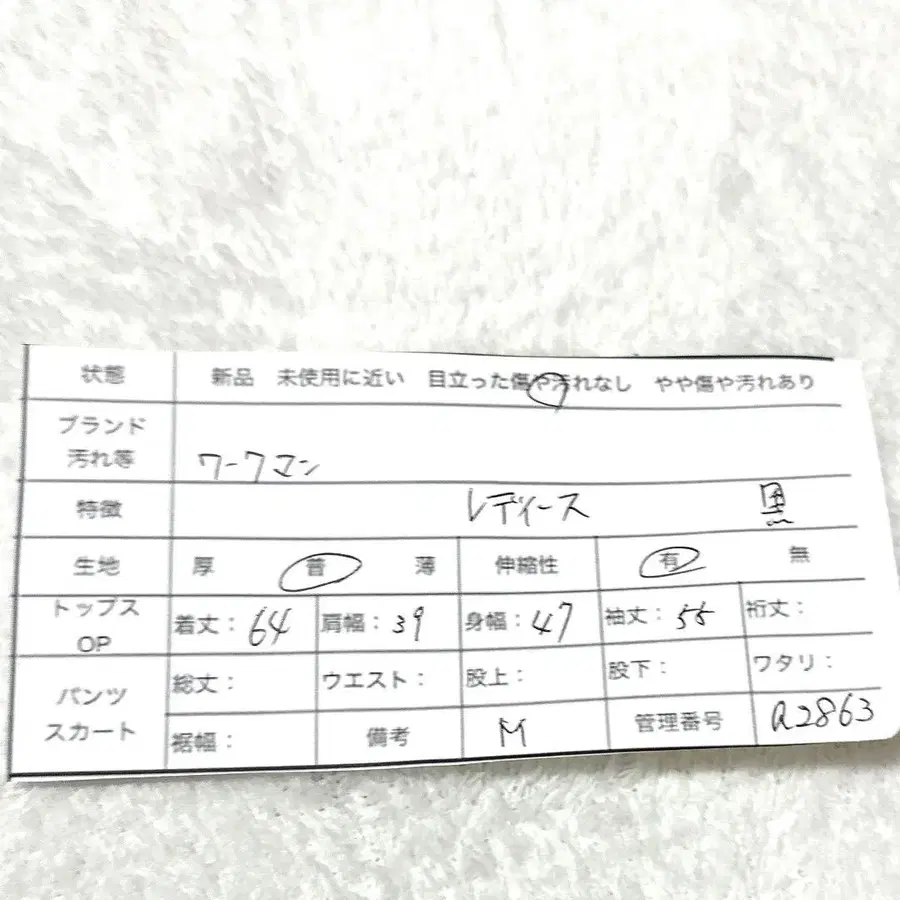 状態 新品 未使用に近い 目立った傷や汚れなし やや傷や汚れあり
ブランド
汚れ等 ワークマン
特徴 レディース 黒
生地 厚 普 薄 伸縮性 有 無
トップス
OP 着丈：64 肩幅：39 身幅：47 袖丈：55 裄丈：
パンツ
スカート 総丈： ウエスト： 股上： 股下： ワタリ：
裾幅： 備考 M 管理番号 a2863